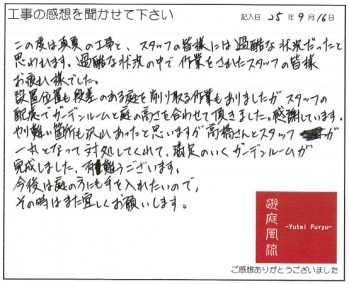 工事の感想を聞かせて下さい
記入日 25年9月16日
この度は真夏の工事と、スタッフの皆様には過酷な状況だったと
思われます。過酷な状況の中で作業をされたスタッフの皆様
お疲れ様でした。
設置位置も段差のある庭を削り取る作業もありましたがスタッフの
配慮でガーデンルームと庭の高さを合わせて頂きました。感謝しています。
やり難い箇所も沢山あったと思いますが高橋さんとスタッフが
一丸となって対処してくれて、満足のいくガーデンルームが
完成しました。有難うございます。
今後は庭の方にも手を入れたいので、
その時はまた宜しくお願いします。
遊庭風流
-Yutei Furyu-
ご感想ありがとうございました